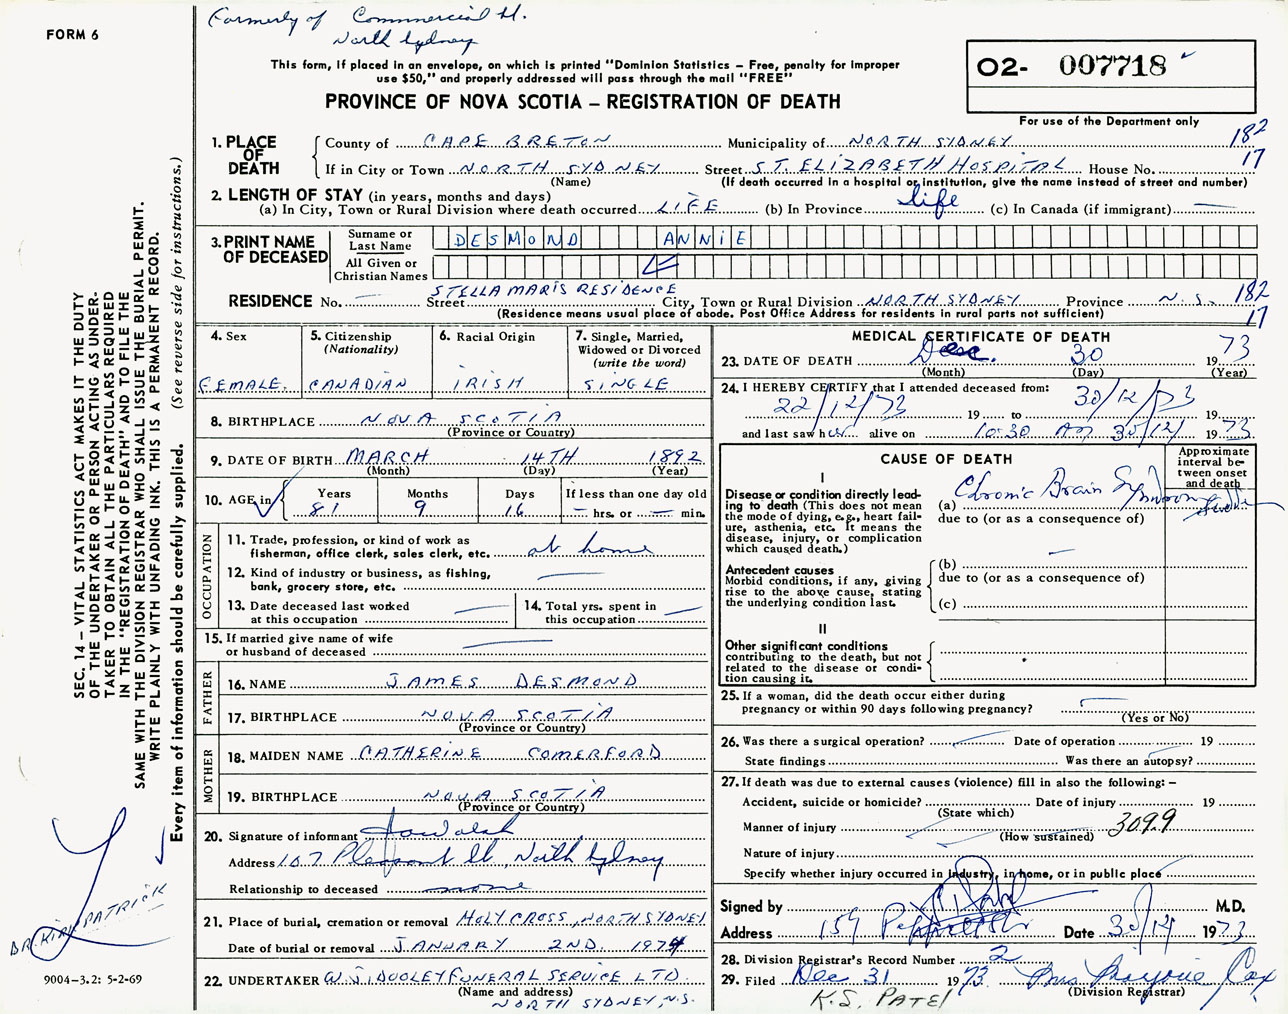 FORM 6
Formerly of Commercial St.
North Sydney
This form, if placed in an envelope, on which is printed "Dominion Statistics – Free, penalty for improper
use $50," and properly addressed will pass through the mail "FREE"
PROVINCE OF NOVA SCOTIA – REGISTRATION OF DEATH
O2- 007718
For use of the Department only
1. PLACE OF DEATH
County of CAPE BRETON Municipality of NORTH SYDNEY 182
If in City or Town NORTH SYDNEY Street ST. ELIZABETH HOSPITAL House No. 17
(Name) (If death occurred in a hospital or institution, give the name instead of street and number)
2. LENGTH OF STAY (in years, months and days)
(a) In City, Town or Rural Division where death occurred LIFE (b) In Province life (c) In Canada (if immigrant) —
3. PRINT NAME OF DECEASED
Surname or Last Name DESMOND ANNIE
All Given or Christian Names
RESIDENCE No. — Street STELLA MARIS RESIDENCE City, Town or Rural Division NORTH SYDNEY Province N.S. 182
(Residence means usual place of abode. Post Office Address for residents in rural parts not sufficient) 17
4. Sex
FEMALE
5. Citizenship
(Nationality)
CANADIAN
6. Racial Origin
IRISH
7. Single, Married,
Widowed or Divorced
(write the word)
SINGLE
8. BIRTHPLACE NOVA SCOTIA
(Province or Country)
9. DATE OF BIRTH MARCH 14TH 1892
(Month) (Day) (Year)
10. AGE in
Years Months Days If less than one day old
81 9 16 — hrs. or — min.
OCCUPATION
11. Trade, profession, or kind of work as
fisherman, office clerk, sales clerk, etc. at home
12. Kind of industry or business, as fishing,
bank, grocery store, etc. —
13. Date deceased last worked
at this occupation —
14. Total yrs. spent in
this occupation —
15. If married give name of wife
or husband of deceased —
FATHER
16. NAME JAMES DESMOND
17. BIRTHPLACE NOVA SCOTIA
(Province or Country)
MOTHER
18. MAIDEN NAME CATHERINE COMERFORD
19. BIRTHPLACE NOVA SCOTIA
(Province or Country)
20. Signature of informant
Address 107 Pleasant St, North Sydney
Relationship to deceased none
21. Place of burial, cremation or removal HOLY CROSS, NORTH SYDNEY
Date of burial or removal JANUARY 2ND 1974
22. UNDERTAKER W.J. DOOLEY FUNERAL SERVICE LTD.
(Name and address)
NORTH SYDNEY, N.S.
MEDICAL CERTIFICATE OF DEATH
23. DATE OF DEATH Dec. 30 1973
(Month) (Day) (Year)
24. I HEREBY CERTIFY that I attended deceased from:
22/12/73 19 to 30/12/73 19
and last saw her alive on 10:30 AM 30/12/ 1973
CAUSE OF DEATH
Approximate
interval be-
tween onset
and death
I
Disease or condition directly lead-
ing to death (This does not mean
the mode of dying, e.g., heart fail-
ure, asthenia, etc. It means the
disease, injury, or complication
which caused death.)
(a) Chronic Brain Syndrome
due to (or as a consequence of)
Antecedent causes
Morbid conditions, if any, giving
rise to the above cause, stating
the underlying condition last.
(b) —
due to (or as a consequence of)
(c)
II
Other significant conditions
contributing to the death, but not
related to the disease or condi-
tion causing it.
25. If a woman, did the death occur either during
pregnancy or within 90 days following pregnancy? —
(Yes or No)
26. Was there a surgical operation? Date of operation 19
State findings Was there an autopsy?
27. If death was due to external causes (violence) fill in also the following: –
Accident, suicide or homicide? Date of injury 19
(State which)
Manner of injury 309.9
(How sustained)
Nature of injury
Specify whether injury occurred in industry, in home, or in public place
Signed by M.D.
Address 159 Date 30/12 1973
28. Division Registrar's Record Number 2
29. Filed Dec 31 1973 Mrs Marjorie Cox
(Division Registrar)
K.S. PATEL
SEC. 14 – VITAL STATISTICS ACT MAKES IT THE DUTY
OF THE UNDERTAKER OR PERSON ACTING AS UNDER-
TAKER TO OBTAIN ALL THE PARTICULARS REQUIRED
IN THE "REGISTRATION OF DEATH" AND TO FILE THE
SAME WITH THE DIVISION REGISTRAR WHO SHALL ISSUE THE BURIAL PERMIT.
WRITE PLAINLY WITH UNFADING INK. THIS IS A PERMANENT RECORD.
Every item of information should be carefully supplied. (See reverse side for instructions.)
DR. KIRKPATRICK
9004-3.2: 5-2-69